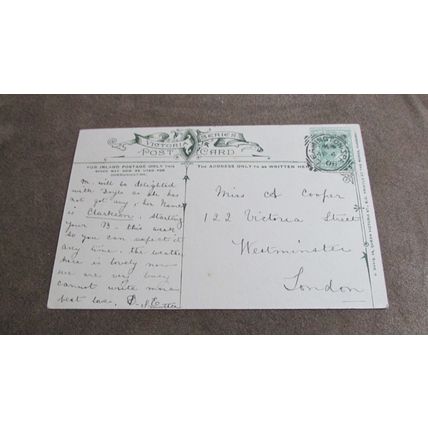 VICTORIA SERIES
POST CARD
FOR INLAND POSTAGE ONLY THIS
SPACE MAY NOW BE USED FOR
COMMUNICATION.
The ADDRESS ONLY to be WRITTEN HERE
M. will be delighted
with Doyle as she has
not got any, her name
is Clarkson, starting
your B— this week
so you can expect it
any time— the weather
here is lovely now
we are very busy
cannot write more
best love,
Miss A Cooper
122 Victoria Street
Westminster
London